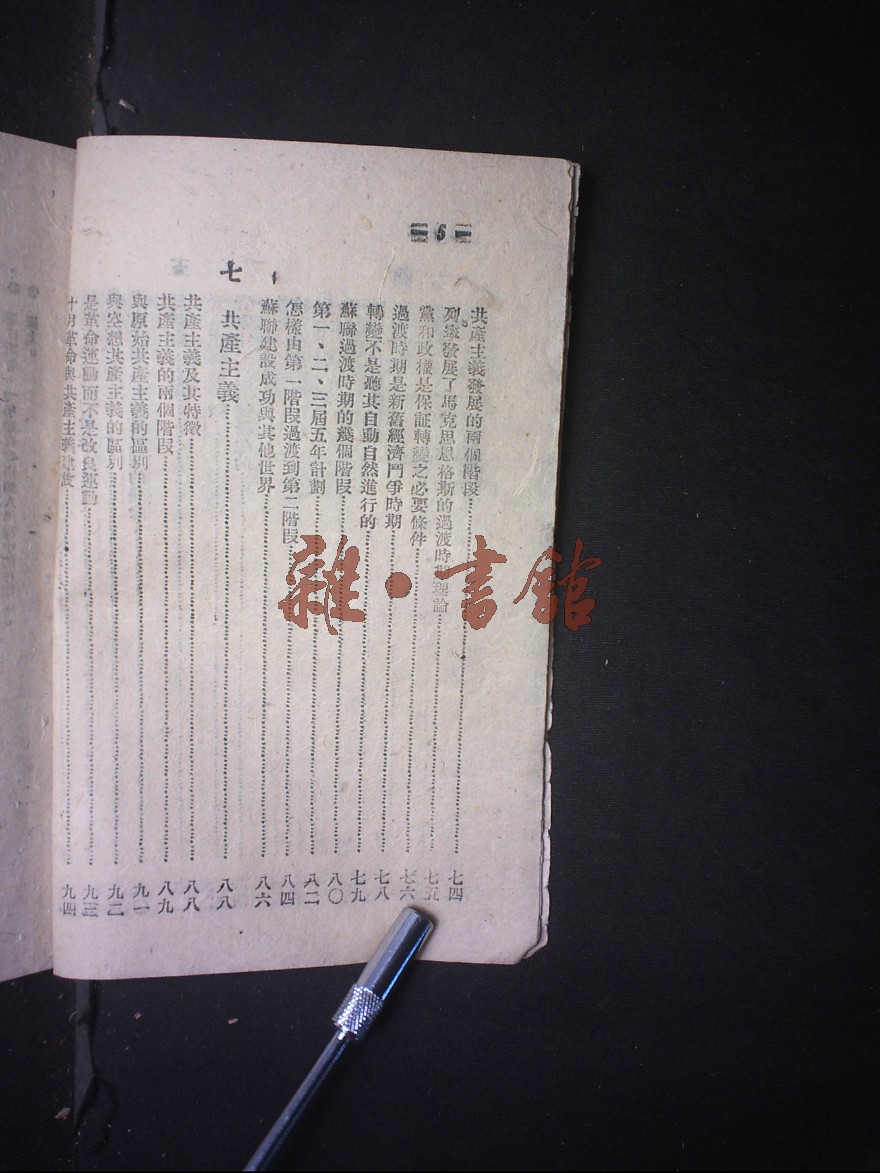 6
共產主義發展的兩個階段……七四
列寧發展了馬克思恩格斯的過渡時期理論……七五
黨和政權是保証轉變之必要條件……七六
過渡時期是新舊經濟鬥爭時期……七八
轉變不是聽其自動自然進行的……七九
蘇聯過渡時期的幾個階段……八〇
第一、二、三屆五年計劃……八二
怎樣由第一階段過渡到第二階段……八四
蘇聯建設成功與其他世界……八六
七 共產主義……八八
共產主義及其特徵……八八
共產主義的兩個階段……八九
與原始共產主義的區別……九一
與空想共產主義的區別……九二
是革命運動而不是改良運動……九三
十月革命與共產主義建設……九四
雜·書館